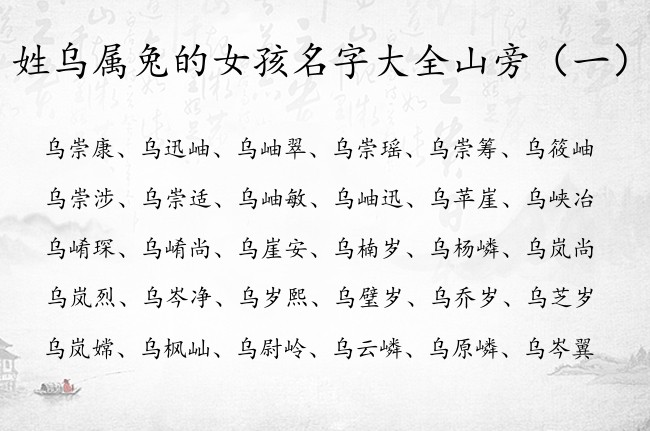 姓乌属兔的女孩名字大全山旁（一）
乌崇康、乌迅岫、乌岫翠、乌崇瑶、乌崇筹、乌筱岫
乌崇涉、乌崇适、乌岫敏、乌岫迅、乌苹崖、乌峡冶
乌崤琛、乌崤尚、乌崖安、乌楠岁、乌杨嶙、乌岚尚
乌岚烈、乌岑净、乌岁熙、乌璧岁、乌乔岁、乌芝岁
乌岚嫦、乌枫屾、乌尉岭、乌云嶙、乌原嶙、乌岑翼